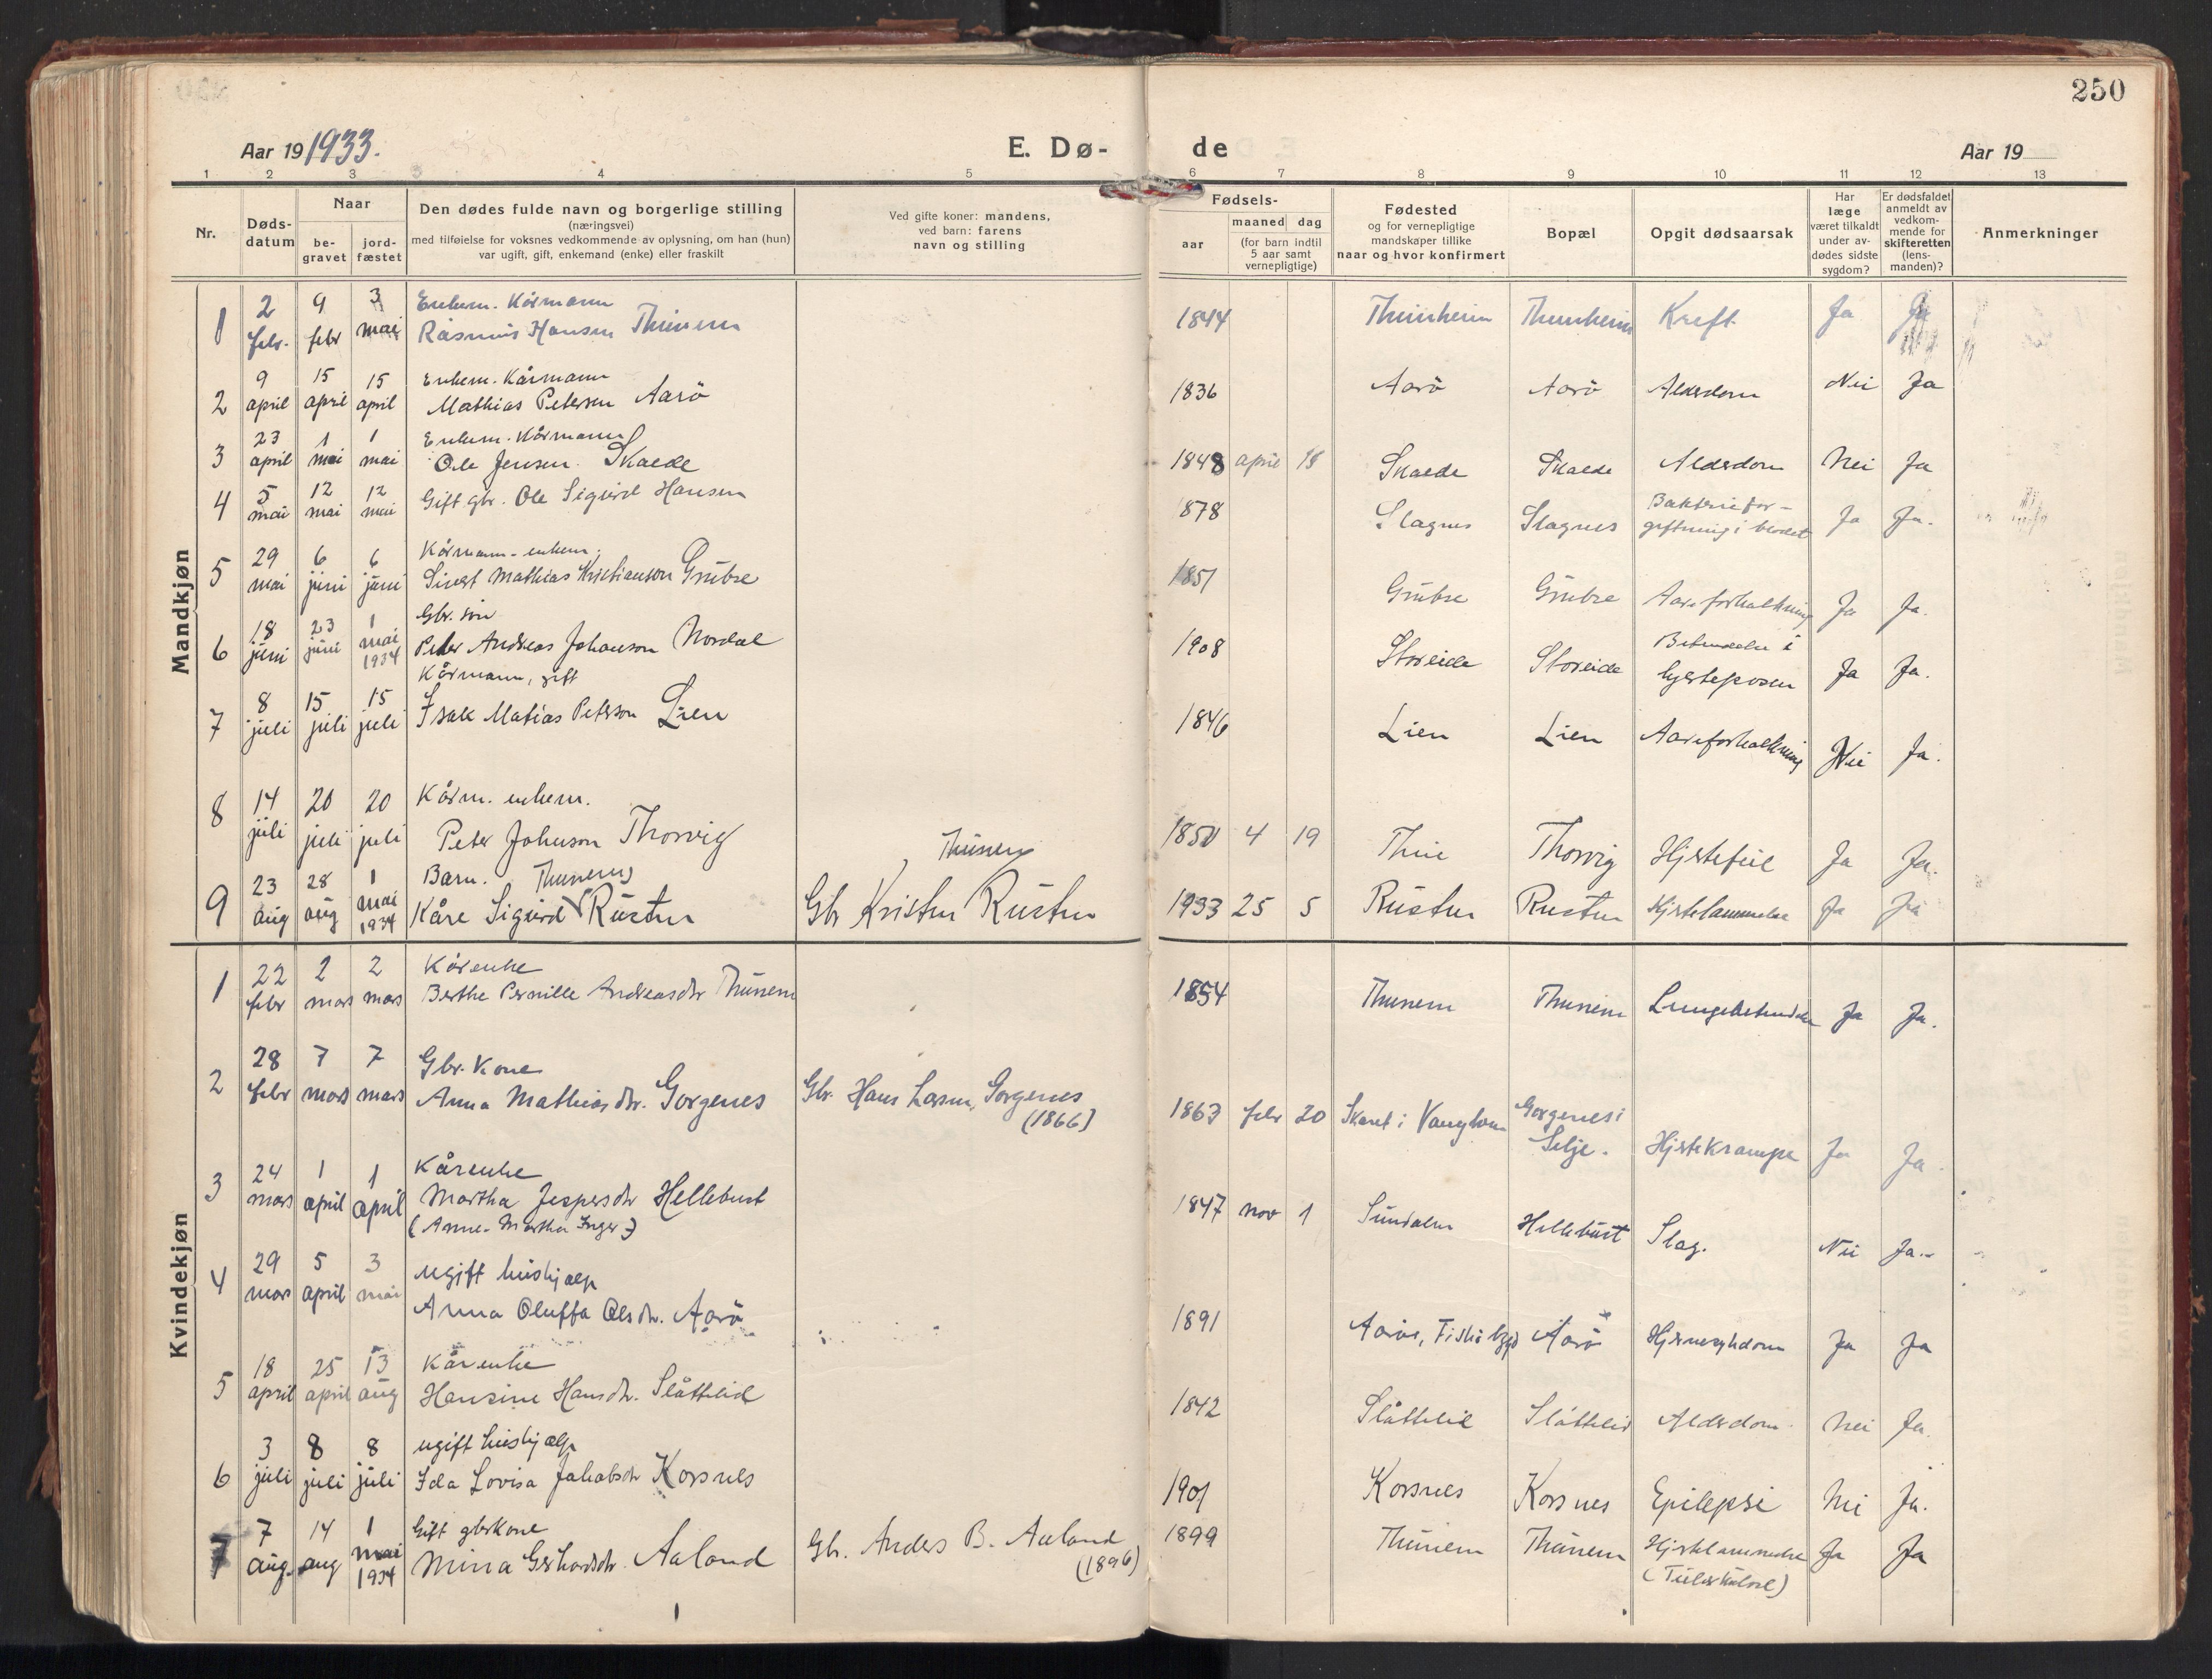 250
Aar 19 1933.
E. Dø-
de
Aar 19
1 2 3 4 5 6 7 8 9 10 11 12 13
Nr.
Døds-
datum
Naar
be-
gravet
jord-
fæstet
Den dødes fulde navn og borgerlige stilling
(næringsvei)
med tilføielse for voksnes vedkommende av oplysning, om han (hun)
var ugift, gift, enkemand (enke) eller fraskilt
Ved gifte koner: mandens,
ved barn: farens
navn og stilling
Fødsels-
aar
maaned dag
(for barn indtil
5 aar samt
vernepligtige)
Fødested
og for vernepligtige
mandskaper tillike
naar og hvor konfirmert
Bopæl
Opgit dødsaarsak
Har
læge
været tilkaldt
under av-
dødes sidste
sygdom?
Er dødsfaldet
anmeldt av
vedkom-
mende for
skifteretten
(lens-
manden)?
Anmerkninger
Mandkjøn
2 9 3 Enkem. Kårmann
1 febr. febr mai Rasmus Hansen Thunem 1844 Thunheim Thunheim Kreft Ja Ja
9 15 15 Enkem. Kårmann
2 april april april Mathias Petersen Aarö 1836 Aarö Aarö Alderdom Nei Ja
23 1 1 Enkem. Kårmann
3 april mai mai Ole Jensen Skaede 1848 april 18 Skaede Skaede Alderdom Nei Ja
5 12 12 Bakteriefor-
4 mai mai mai Gift gbr. Ole Sigurd Hansen 1878 Slagnes Slagnes giftning i blodet Ja Ja.
29 6 6 Kårmann - enkem.
5 mai juni juni Sivert Mathias Kristianson Grubse 1851 Grubse Grubse Aareforkalkning Ja Ja.
18 23 1 Gbr. sön
6 juni juni mai 1934 Peter Andreas Johanson Nordal 1908 Storeide Storeide Betendelse i
hjerteposen Ja Ja.
8 15 15 Kårmann, gift
7 juli juli juli Isak Matias Peterson Lien 1846 Lien Lien Aareforkalkning Nei Ja.
14 20 20 Kårm. enkem.
8 juli juli juli Peter Johnson Thorvig 1850 4 19 Thue Thorvig Hjertefeil Ja Ja.
23 28 1 Barn. Thunem Thunem
9 aug aug mai 1934 Kåre Sigurd Rusten Gbr Kristen Rusten 1933 25 5 Rusten Rusten Hjertelammelse Ja Ja
Kvindekjøn
22 2 2 Kårenke
1 febr mars mars Berthe Pernille Andreasdtr Thunem 1854 Thunem Thunem Lungebetendelse Ja Ja.
28 7 7 Gbr. Kone
2 febr mars mars Anna Mathiasdtr. Gorgenes Gbr. Hans Larsen, Gorgenes
(1866) 1863 febr 20 Skaret i Gorgenes i
Selje. Hjertekrampe Ja Ja
24 1 1 Kårenke
3 mars april april Martha Jespersdtr Hellebust 1847 nov 1 Sundalen Hellebust Slag. Nei Ja.
(Anne-Martha Inger)
29 5 3 ugift hushjælp
4 mars april mai Anna Oluffa Olsdtr. Aarö 1891 Aarö, Aarö Hjernesykdom Ja Ja
18 25 13 Kårenke
5 april april aug Hansine Hansdtr. Slåttelid 1842 Slåttelid Slåttelid Alderdom Nei Ja.
3 8 8 ugift hushjælp
6 juli juli juli Ida Lovisa Jakobsdtr Korsnes 1901 Korsnes Korsnes Epilepsi Nei Ja.
7 14 1 Gift gbrkone
7 aug. aug mai 1934 Mina Gerhardsdtr. Aaland Gbr. Anders B. Aaland
(1896) 1899 Thunem Thunem Hjertelammelse
(Tuberkulose) Ja Ja